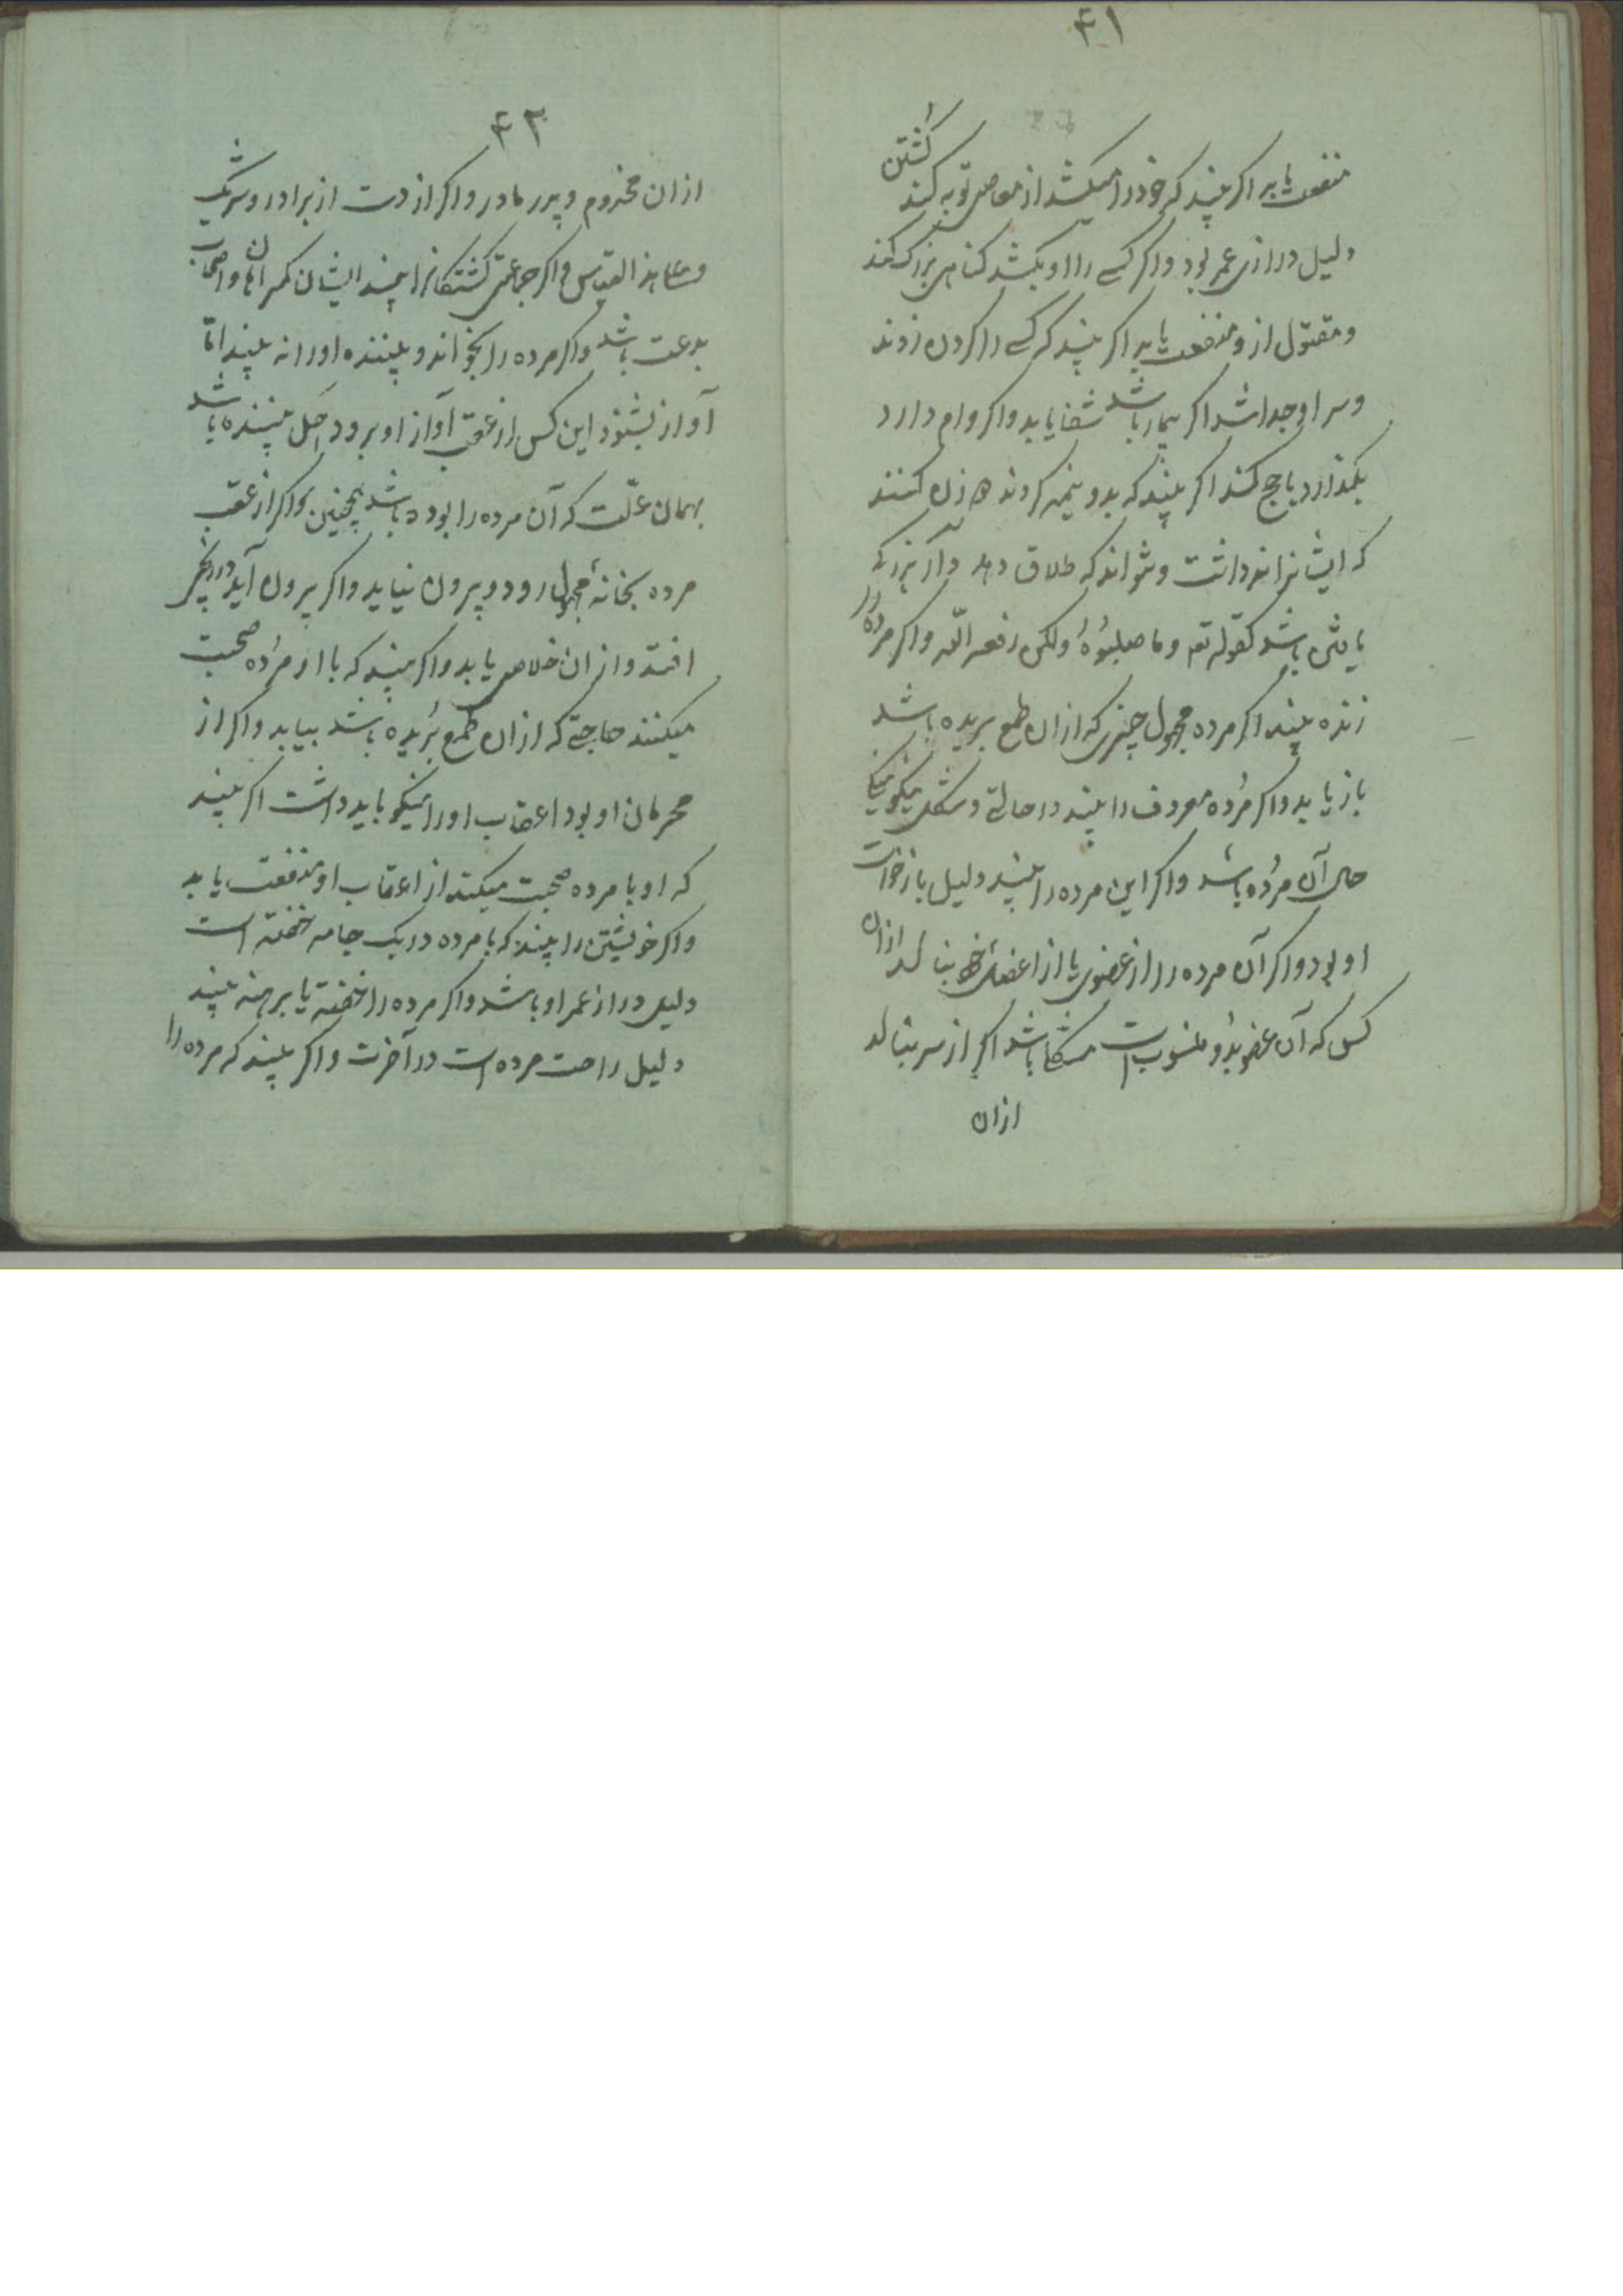 ۴۱
منفعت یابد اکر بیند که خود را میکشد از معاصی توبه کند کشتن
دلیل درازی عمر بود واکر کسے را او بکشد کناهی بزرک کند
ومقتول ازو منفعت یابد اکر بیند که کسے را کردن زدند
وسر او جدا شد اکر بیمار باشد شفا یابد واکر وام دارد
بکذارد یا حج کند اکر بیند که بدو نیمه کردند
که ایشانرا نداشت و نتواند که طلاق دهد
باشد کقوله تع وما صلبوه ولکن رفعه الله واکر مرده را
زنده بیند اکر مرده مجهول چیزی که ازان طمع بریده باشد
باز یابد واکر مرده معروف را بیند در حالتے وشکل نیکو
حال آن مرده باشد واکر این مرده را بیند دلیل بازخواست
او بود واکر آن مرده را از عضوی یا از اعضای خود بنالد ازان
کس که آن عضو بدو منسوب است باشد اکر از سر بنالد
ازان
۴۲
ازان مخدوم و پدر مادر واکر از دست از برادر وشریک
وعلی هذا القیاس واکر جماعتی کشتکانرا بیند ایشان کمراهان واصحاب
بدعت باشد واکر مرده را بخواند و بیننده اورا نه بیند امّا
آواز بشنود این کس از عقب آواز او برود اجل بیننده باشد
بهمان علّت که آن مرده را بوده باشد همچنین واکر از عقب
مرده بخانهٔ مجهول رود وبیرون نیاید واکر بیرون آید در رنجی
افتد وازان خلاص یابد واکر بیند که با او مرده صحبت
میکنند حاجتے که ازان طمع بریده باشد بیابد واکر از
محرمان او بود اعقاب اورا نیکو باید داشت اکر بیند
که او با مرده صحبت میکند از اعقاب او منفعت یابد
واکر خویشتن را بیند که با مرده در یک جامه خفته است
دلیل دراز عمر او باشد واکر مرده را خفته یا برهنه بیند
دلیل راحت مرده است در آخرت واکر بیند که مرده را